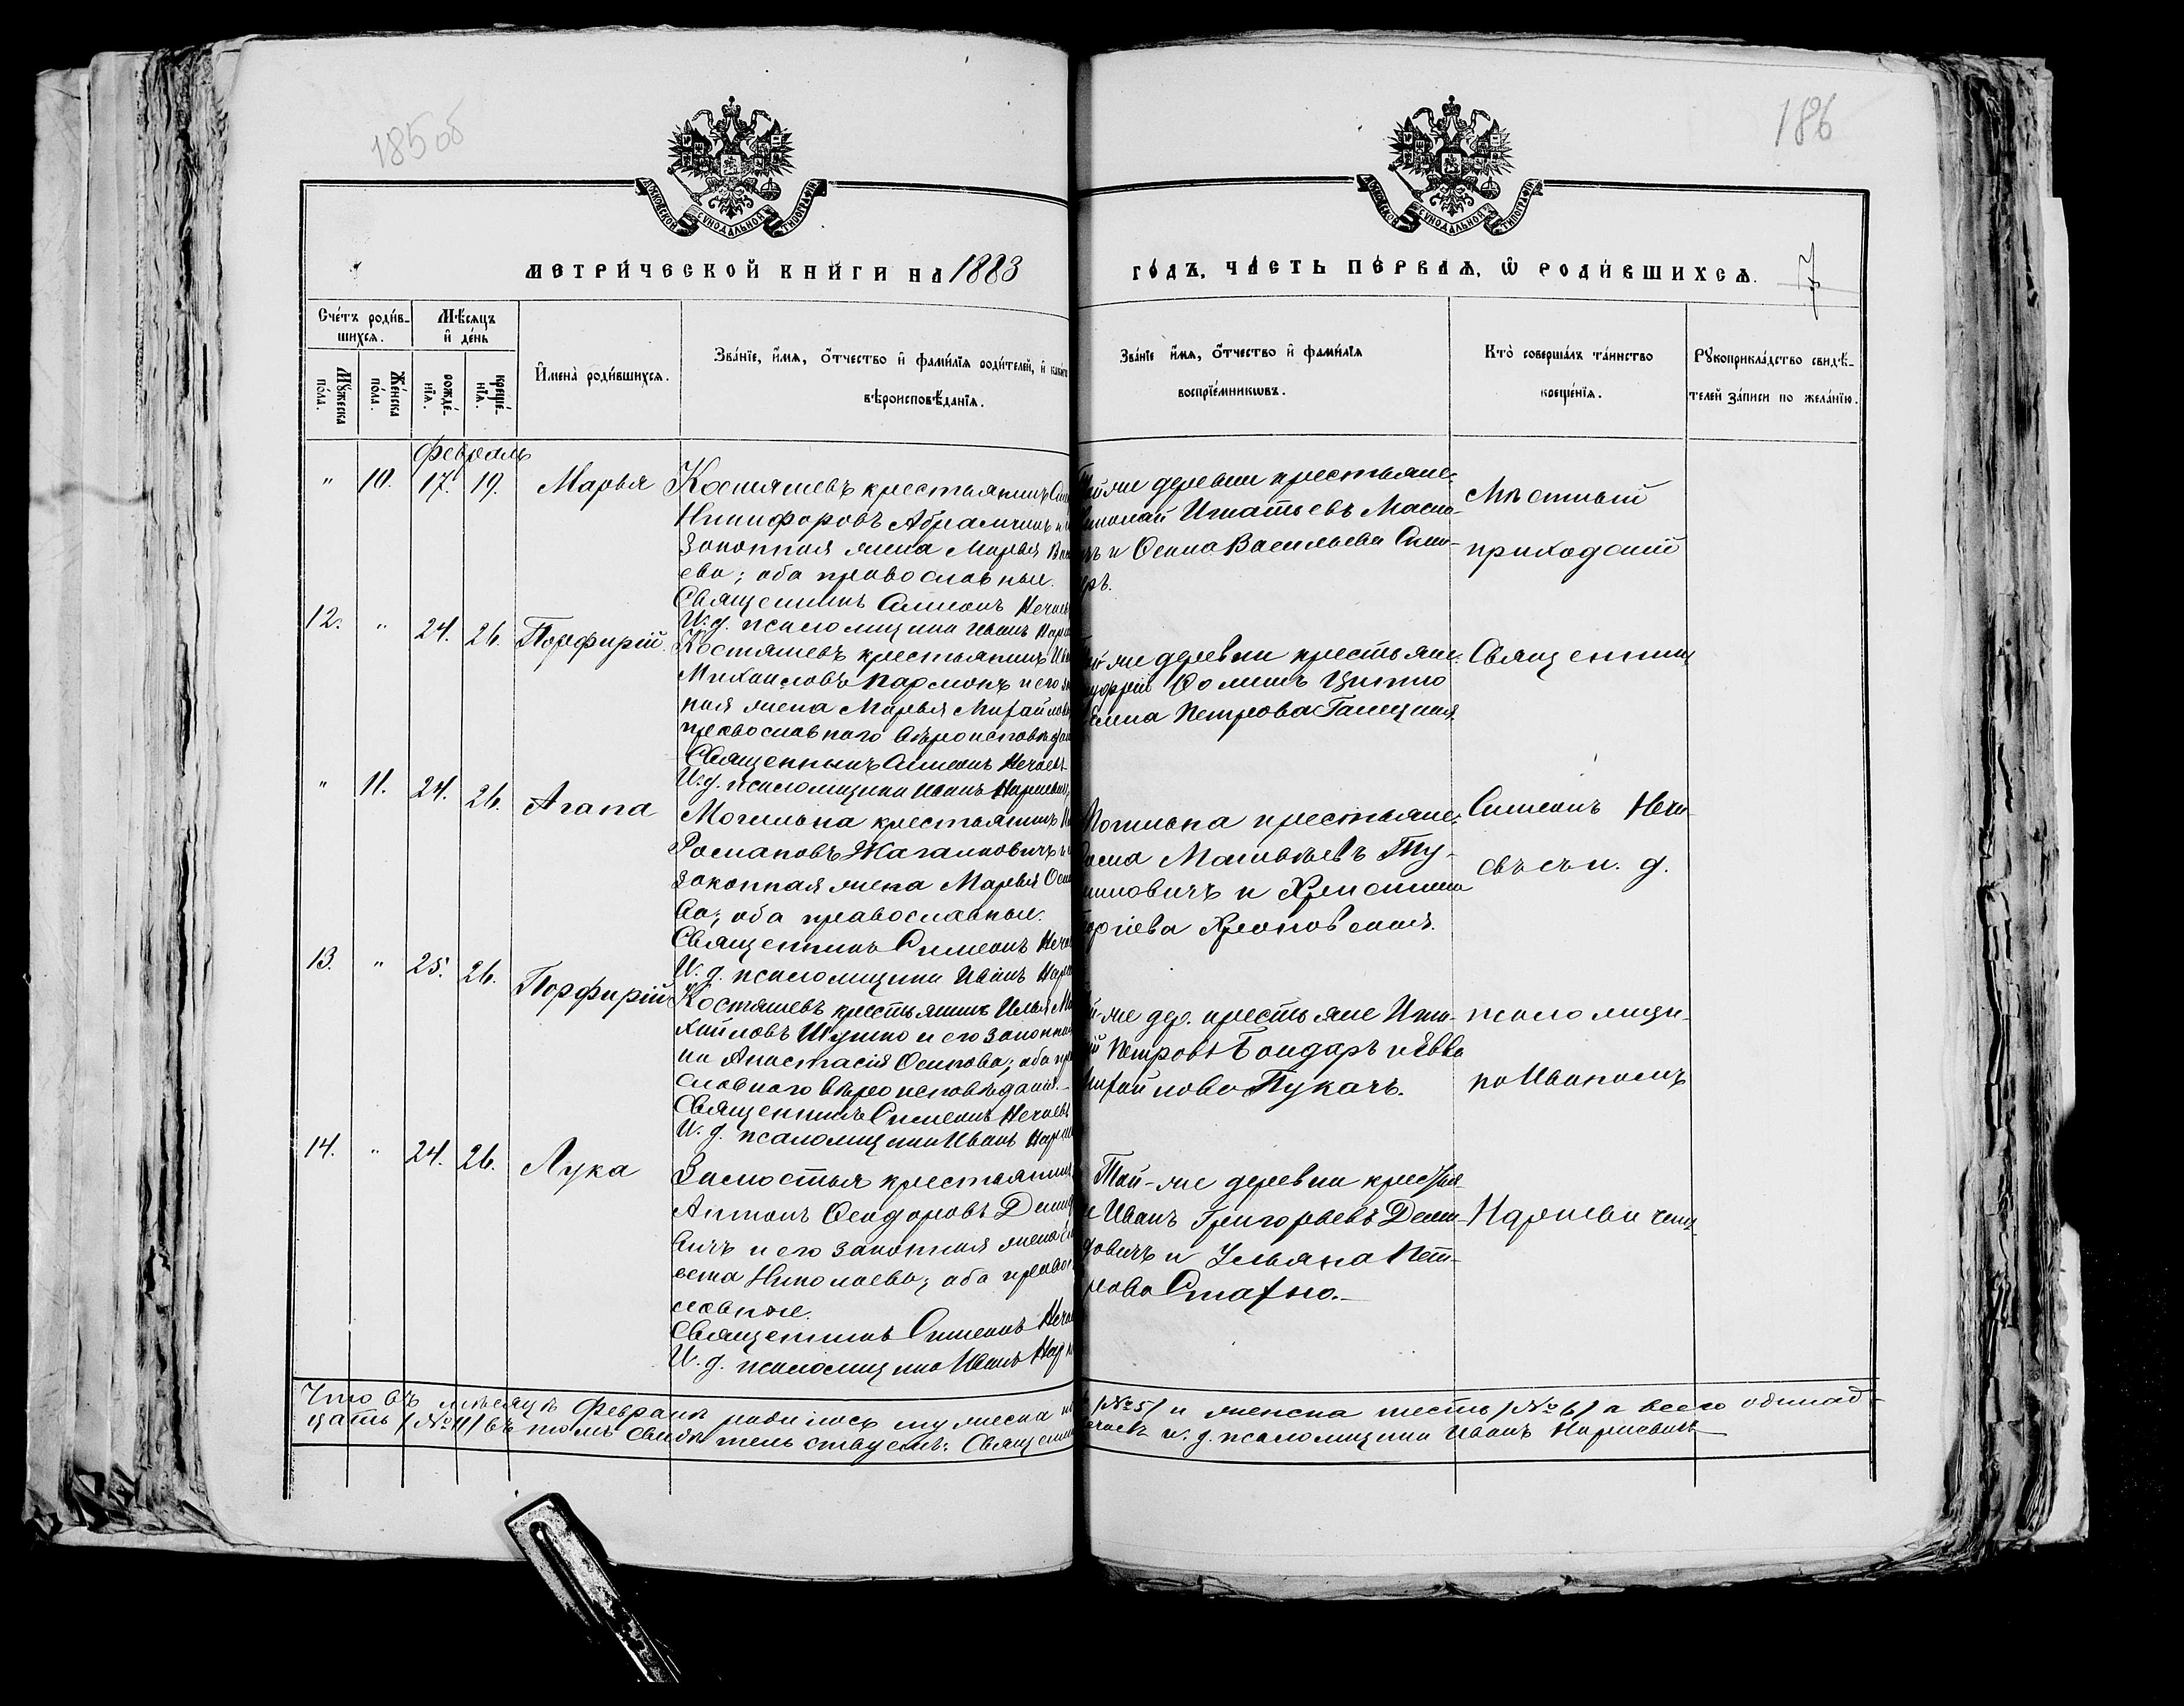 185 об
186
МОСКОВСКОЙ СѴНОДАЛЬНОЙ ТИПОГРАФІИ
МОСКОВСКОЙ СѴНОДАЛЬНОЙ ТИПОГРАФІИ
МЕТРИ́ЧЕСКОЙ КНИ́ГИ НА 1883
ГО́ДЪ, ЧА́СТЬ ПЕ́РВАѦ, Ѿ РОДИ́ВШИХСѦ.
7
Сче́тъ роди́в-
шихсѧ.
Мѣ́сѧцъ
и҆ де́нь
Мꙋ́жеска
по́ла.
Же́нска
по́ла.
рожде́-
нїѧ.
креще́-
нїѧ.
И҆мена̀ роди́вшихсѧ.
Зва́нїе, и҆́мѧ, ѻ҆́тчество и҆ фами́лїѧ роди́телей, и҆
вѣроисповѣ́данїѧ.
Зва́нїе и҆́мѧ, ѻ҆́тчество и҆ фами́лїѧ
воспрїе́мникѡвъ.
Кто̀ соверша́лъ та́инство
креще́нїѧ.
Рꙋкоприкла́дство свидѣ́-
телей за́писи по жела́нїю.
Февраль
" 10. 17. 19. Марья
Костяшевъ крестьянинъ
Никифоровъ Абрамчикъ и
законная жена Марья
ева; оба православные.
Священникъ Симеонъ
И. д. псаломщика Иванъ
же деревни крестьяне:
Игнатьевъ
и Осипа Васильева
Мѣстный
приходскій
12. " 24. 26. Порфирій.
Костяшевъ крестьянинъ
Михаиловъ Кармонъ и его
ная жена Марья Михайлова
православного вѣроисповѣдан
Священникъ Симеонъ Нечаевъ
И. д. псаломщика Иванъ
же деревни крестьяне:
Фоминъ Цитко
Петрова Галецкая.
Священник
" 11. 24. 26. Агапа
Могильна крестьянинъ
Романовъ Жагалковичъ и
законная жена Марья
ва; оба православные.
Священникъ Симеонъ
И. д. псаломщика Иванъ
Могильна крестьяне:
Матвѣевъ Ту-
и Христина
Симеонъ Неча-
евъ съ и. д.
13. " 25. 26. Порфирій
Костяшевъ крестьянинъ Илья Ми
хайловъ Шушко и его законная
на Анастасія Осипова; оба пра
славного вѣроисповѣданія.-
Священникъ Симеонъ Нечаевъ
И. д. псаломщика Иванъ
же дер. крестьяне
Петровъ Бондарь и Евва
Михайлова Пукачъ.
псаломщи-
комъ Иваномъ
14. " 24. 26. Лука
Замостья крестьянинъ
Антонъ Ѳеодоровъ Демид
вичъ и его законная жена
вета Николаева; оба правос
лавные.
Священникъ Симеонъ
И. д. псаломщика Иванъ
Той-же деревни крестья-
Иванъ Григорьевъ Деми-
довичъ и Ульяна Пет-
рова Стахно.-
Наркевичемъ
Что въ мѣсяцѣ Февралѣ родилось мужеска /№5/ и женска шесть /№6/ а всего одинад-
цать /№11/ въ томъ свидѣтельствуемъ: и. д. псаломщика Иванъ Наркевичъ